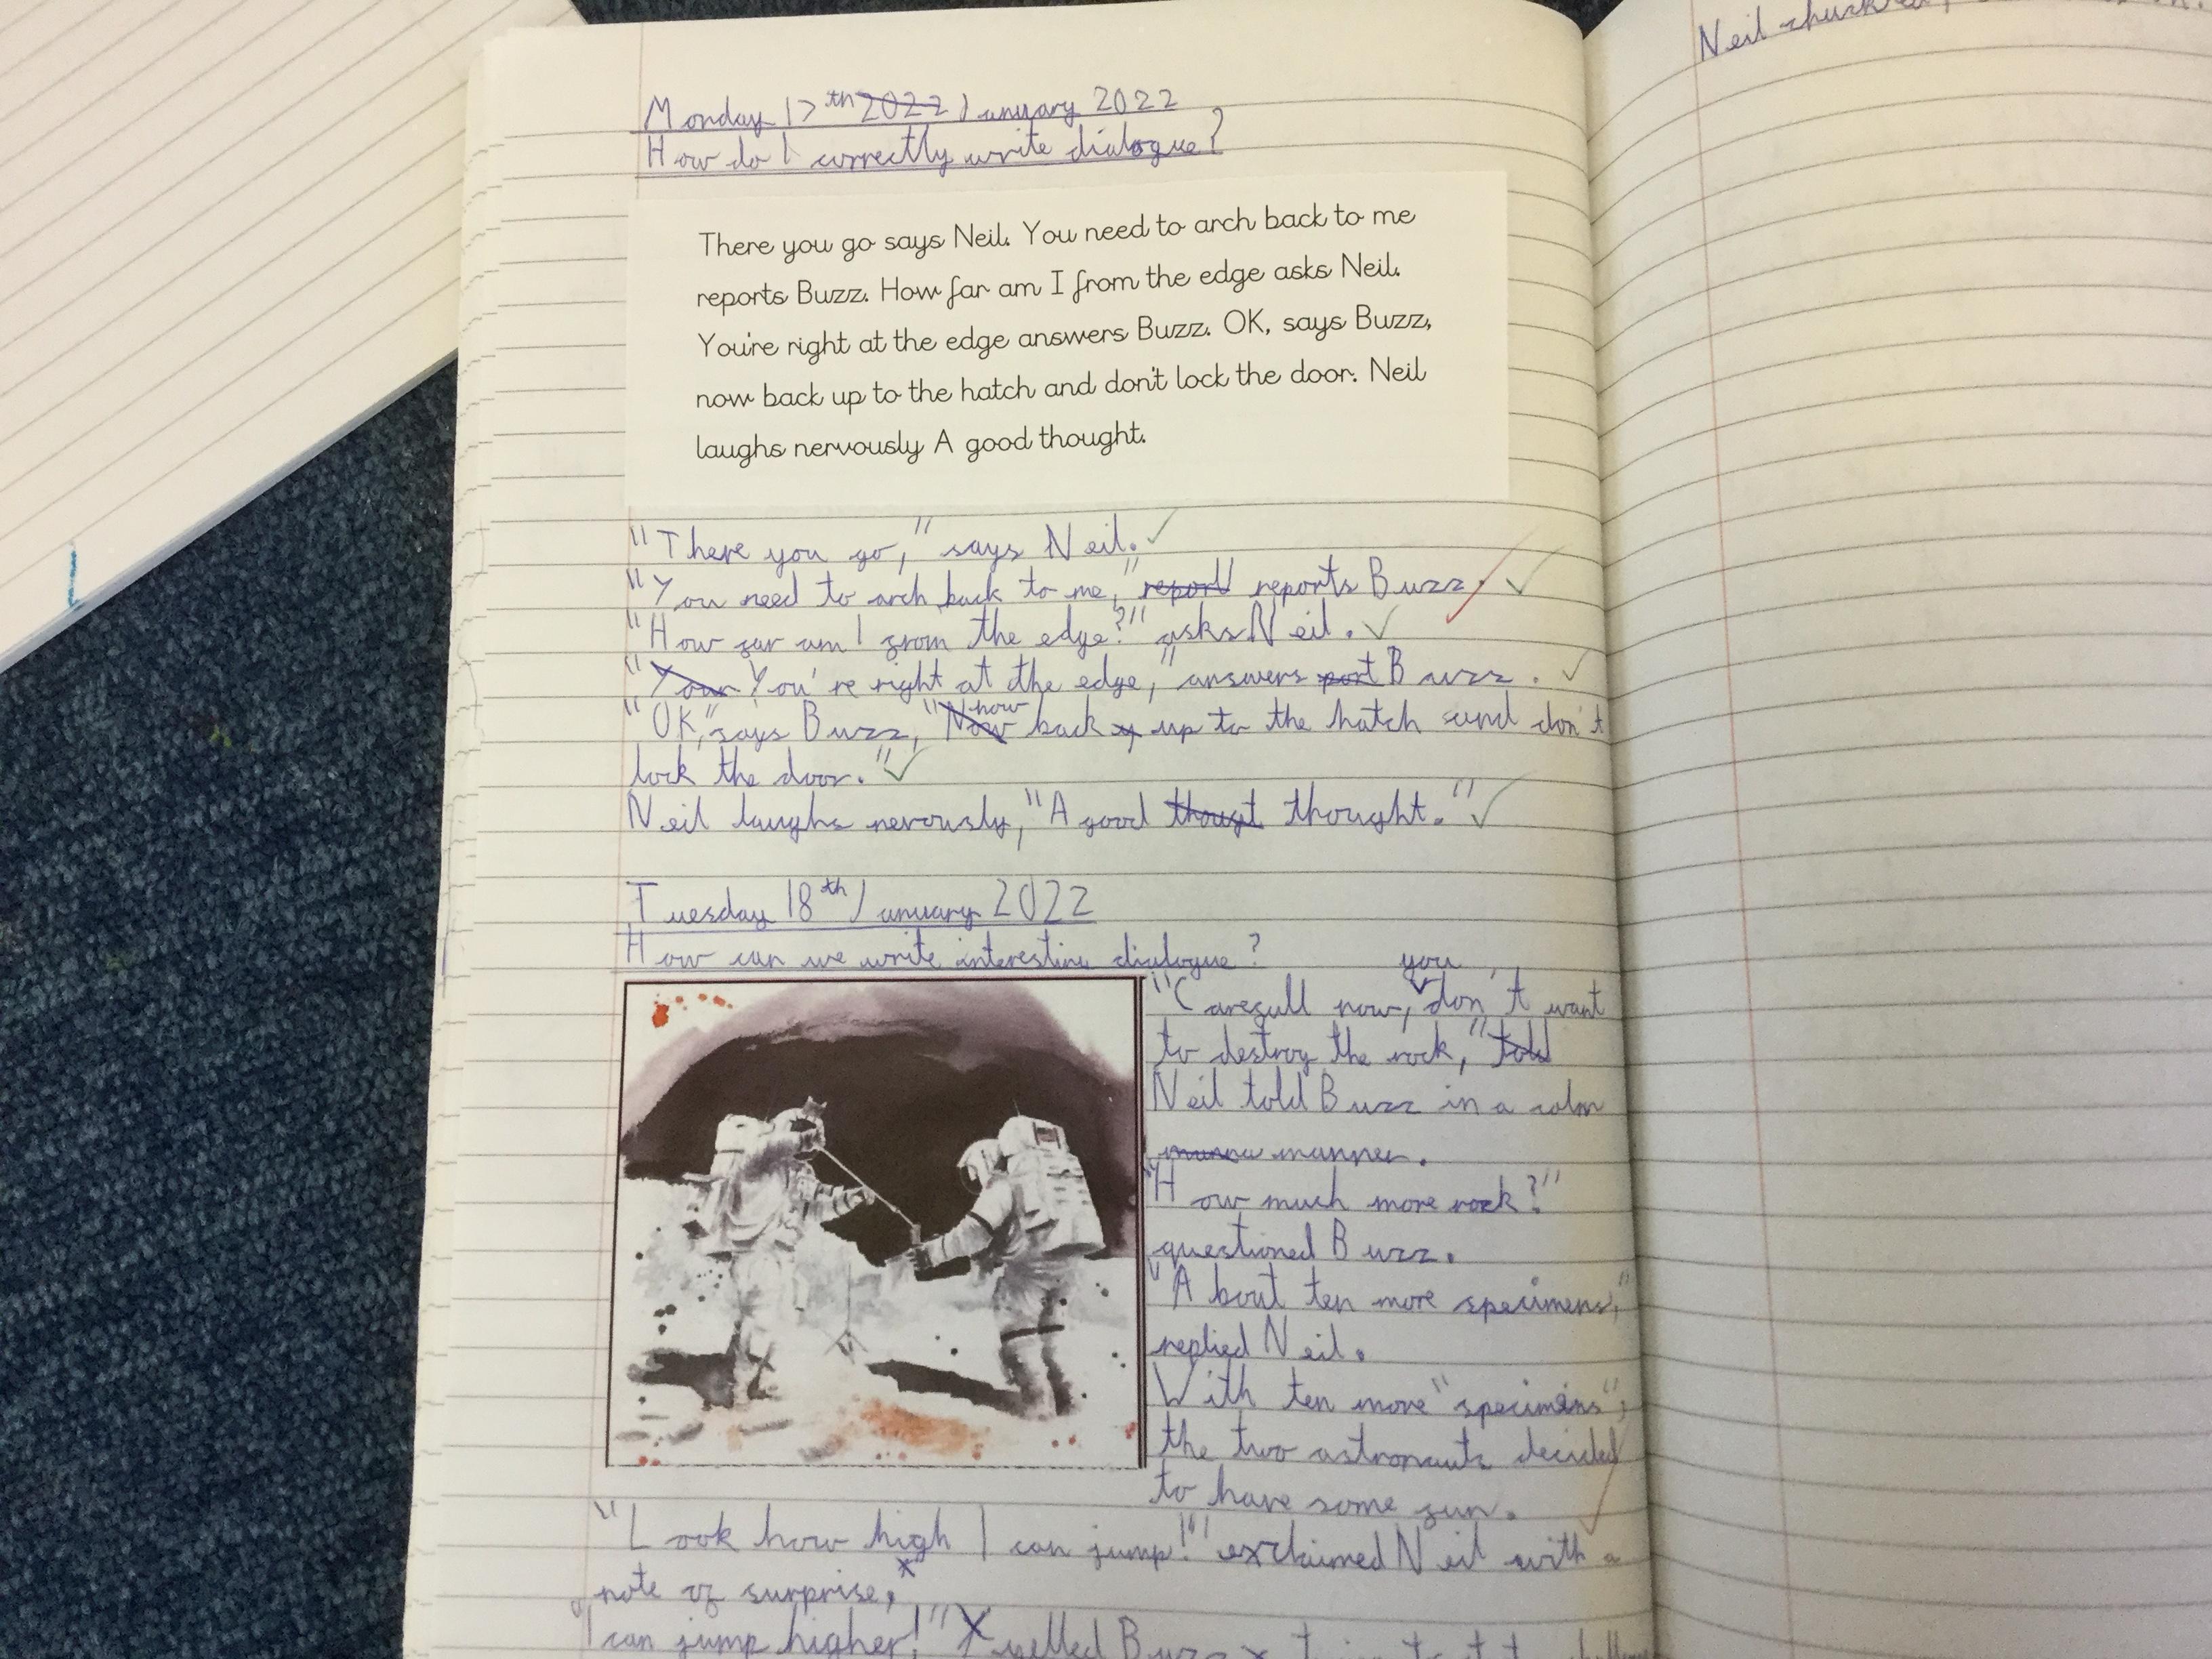 Monday 17th 2022 January 2022
How do I correctly write dialogue?
There you go says Neil. You need to arch back to me
reports Buzz. How far am I from the edge asks Neil.
You're right at the edge answers Buzz. OK, says Buzz,
now back up to the hatch and don't lock the door. Neil
laughs nervously A good thought.
"There you go," says Neil.
"You need to arch back to me," report reports Buzz.
"How far am I from the edge?" asks Neil.
"Your You're right at the edge," answers Buzz.
"OK," says Buzz, "Now now back up to the hatch and don't
lock the door."
Neil laughs nervously, "A good thougt thought."
Tuesday 18th January 2022
How can we write interesting dialogue?
"Carefull now, you don't want
to destroy the rock," told
Neil told Buzz in a calm
manner.
"How much more rock?"
questioned Buzz.
"About ten more specimens,"
replied Neil.
With ten more "specimens",
the two astronauts decided
to have some fun.
"Look how high I can jump!" exclaimed Neil with a
note of surprise.
"I can jump higher!" yelled Buzz
Neil